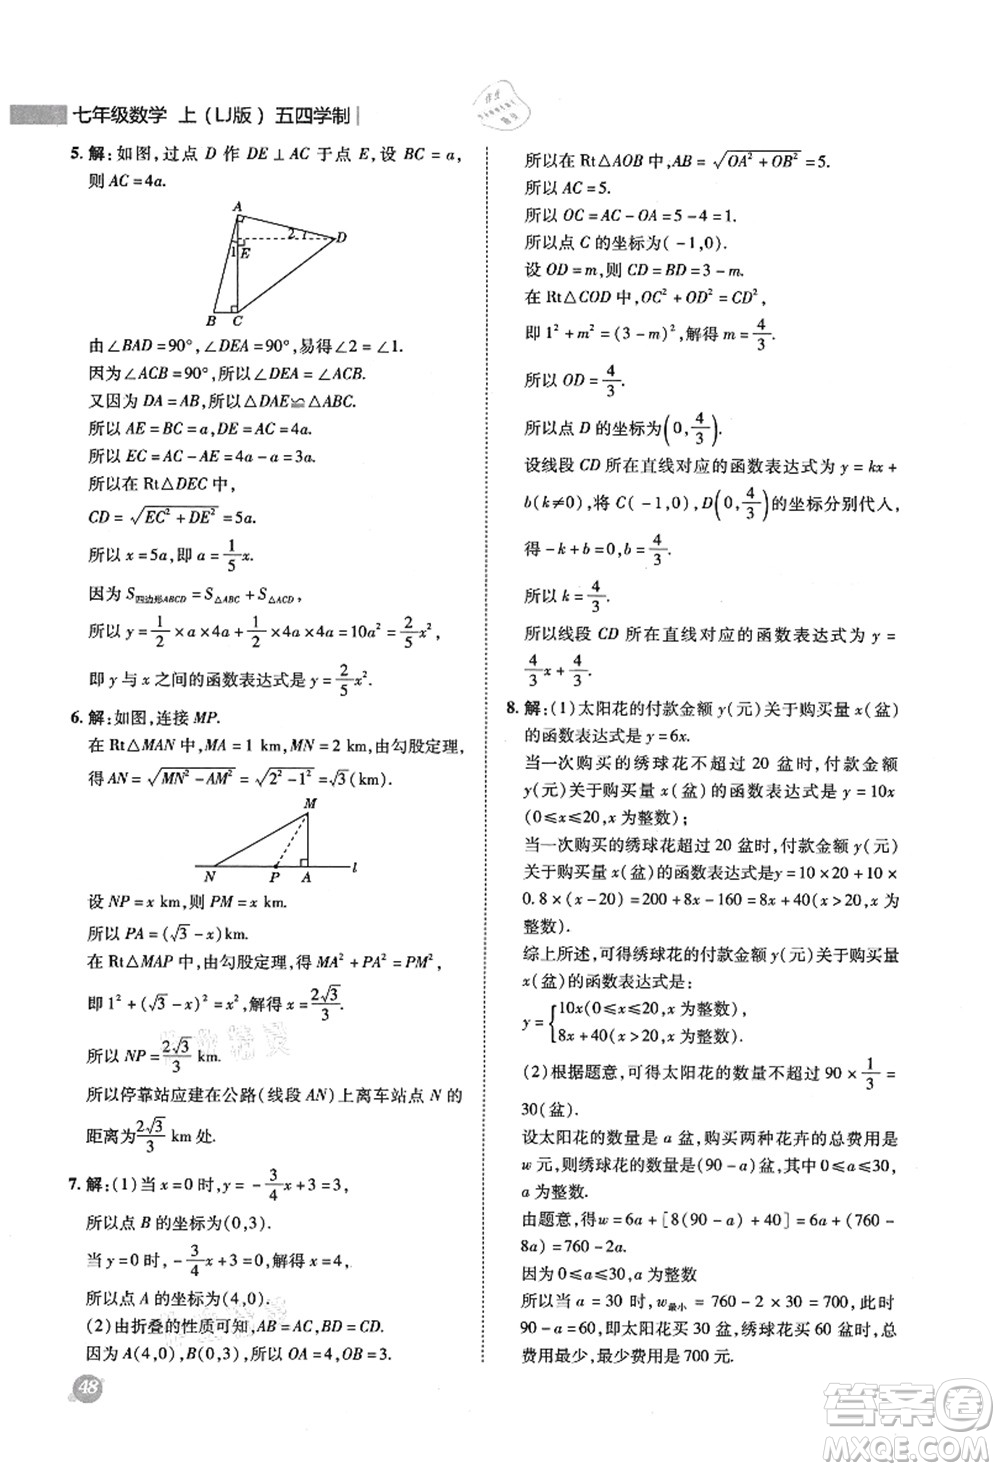 七年级数学 上（LJ版）五四学制
5. 解:如图,过点 D 作 DE⊥AC 于点 E,设 BC=a,
则 AC=4a.
A
2
D
1
E
B
C
由∠BAD=90°,∠DEA=90°,易得∠2=∠1.
因为∠ACB=90°,所以∠DEA=∠ACB.
又因为 DA=AB,所以△DAE≌△ABC.
所以 AE=BC=a,DE=AC=4a.
所以 EC=AC-AE=4a-a=3a.
所以在 Rt△DEC 中,
CD=√(EC²+DE²)=5a.
所以 x=5a,即 a=1/5 x.
因为 S四边形ABCD=S△ABC+S△ACD,
所以 y=1/2×a×4a+1/2×4a×4a=10a²=2/5 x²,
即 y 与 x 之间的函数表达式是 y=2/5 x².
6. 解:如图,连接 MP.
在 Rt△MAN 中,MA=1 km,MN=2 km,由勾股定理,
得 AN=√(MN²-AM²)=√(2²-1²)=√3(km).
M
N P A l
设 NP=x km,则 PM=x km.
所以 PA=(√3-x)km.
在 Rt△MAP 中,由勾股定理,得 MA²+PA²=PM²,
即 1²+(√3-x)²=x²,解得 x=2√3/3.
所以 NP=2√3/3 km.
所以停靠站应建在公路(线段 AN)上离车站点 N 的
距离为2√3/3 km 处.
7. 解:(1)当 x=0 时,y=-3/4 x+3=3,
所以点 B 的坐标为(0,3).
当 y=0 时,-3/4 x+3=0,解得 x=4,
所以点 A 的坐标为(4,0).
(2)由折叠的性质可知,AB=AC,BD=CD.
因为 A(4,0),B(0,3),所以 OA=4,OB=3.
48
所以在 Rt△AOB 中,AB=√(OA²+OB²)=5.
所以 AC=5.
所以 OC=AC-OA=5-4=1.
所以点 C 的坐标为(-1,0).
设 OD=m,则 CD=BD=3-m.
在 Rt△COD 中,OC²+OD²=CD²,
即 1²+m²=(3-m)²,解得 m=4/3.
所以 OD=4/3.
所以点 D 的坐标为(0,4/3).
设线段 CD 所在直线对应的函数表达式为 y=kx+
b(k≠0),将 C(-1,0),D(0,4/3)的坐标分别代人,
得-k+b=0,b=4/3.
所以 k=4/3.
所以线段 CD 所在直线对应的函数表达式为 y=
4/3 x+4/3.
8. 解:(1)太阳花的付款金额 y(元)关于购买量 x(盆)
的函数表达式是 y=6x.
当一次购买的绣球花不超过 20 盆时,付款金额
y(元)关于购买量 x(盆)的函数表达式是 y=10x
(0≤x≤20,x 为整数);
当一次购买的绣球花超过 20 盆时,付款金额 y(元)
关于购买量 x(盆)的函数表达式是 y=10×20+10×
0.8×(x-20)=200+8x-160=8x+40(x>20,x 为
整数).
综上所述,可得绣球花的付款金额 y(元)关于购买量
x(盆)的函数表达式是:
y={10x(0≤x≤20,x 为整数),
8x+40(x>20,x 为整数).
(2)根据题意,可得太阳花的数量不超过 90×1/3=
30(盆).
设太阳花的数量是 a 盆,购买两种花卉的总费用是
w 元,则绣球花的数量是(90-a)盆,其中 0≤a≤30,
a 为整数.
由题意,得w=6a+[8(90-a)+40]=6a+(760-
8a)=760-2a.
因为 0≤a≤30,a 为整数
所以当 a=30 时,w最小=760-2×30=700,此时
90-a=60,即太阳花买 30 盆,绣球花买 60 盆时,总
费用最少,最少是 700 元.
答案圈
MXQE.COM